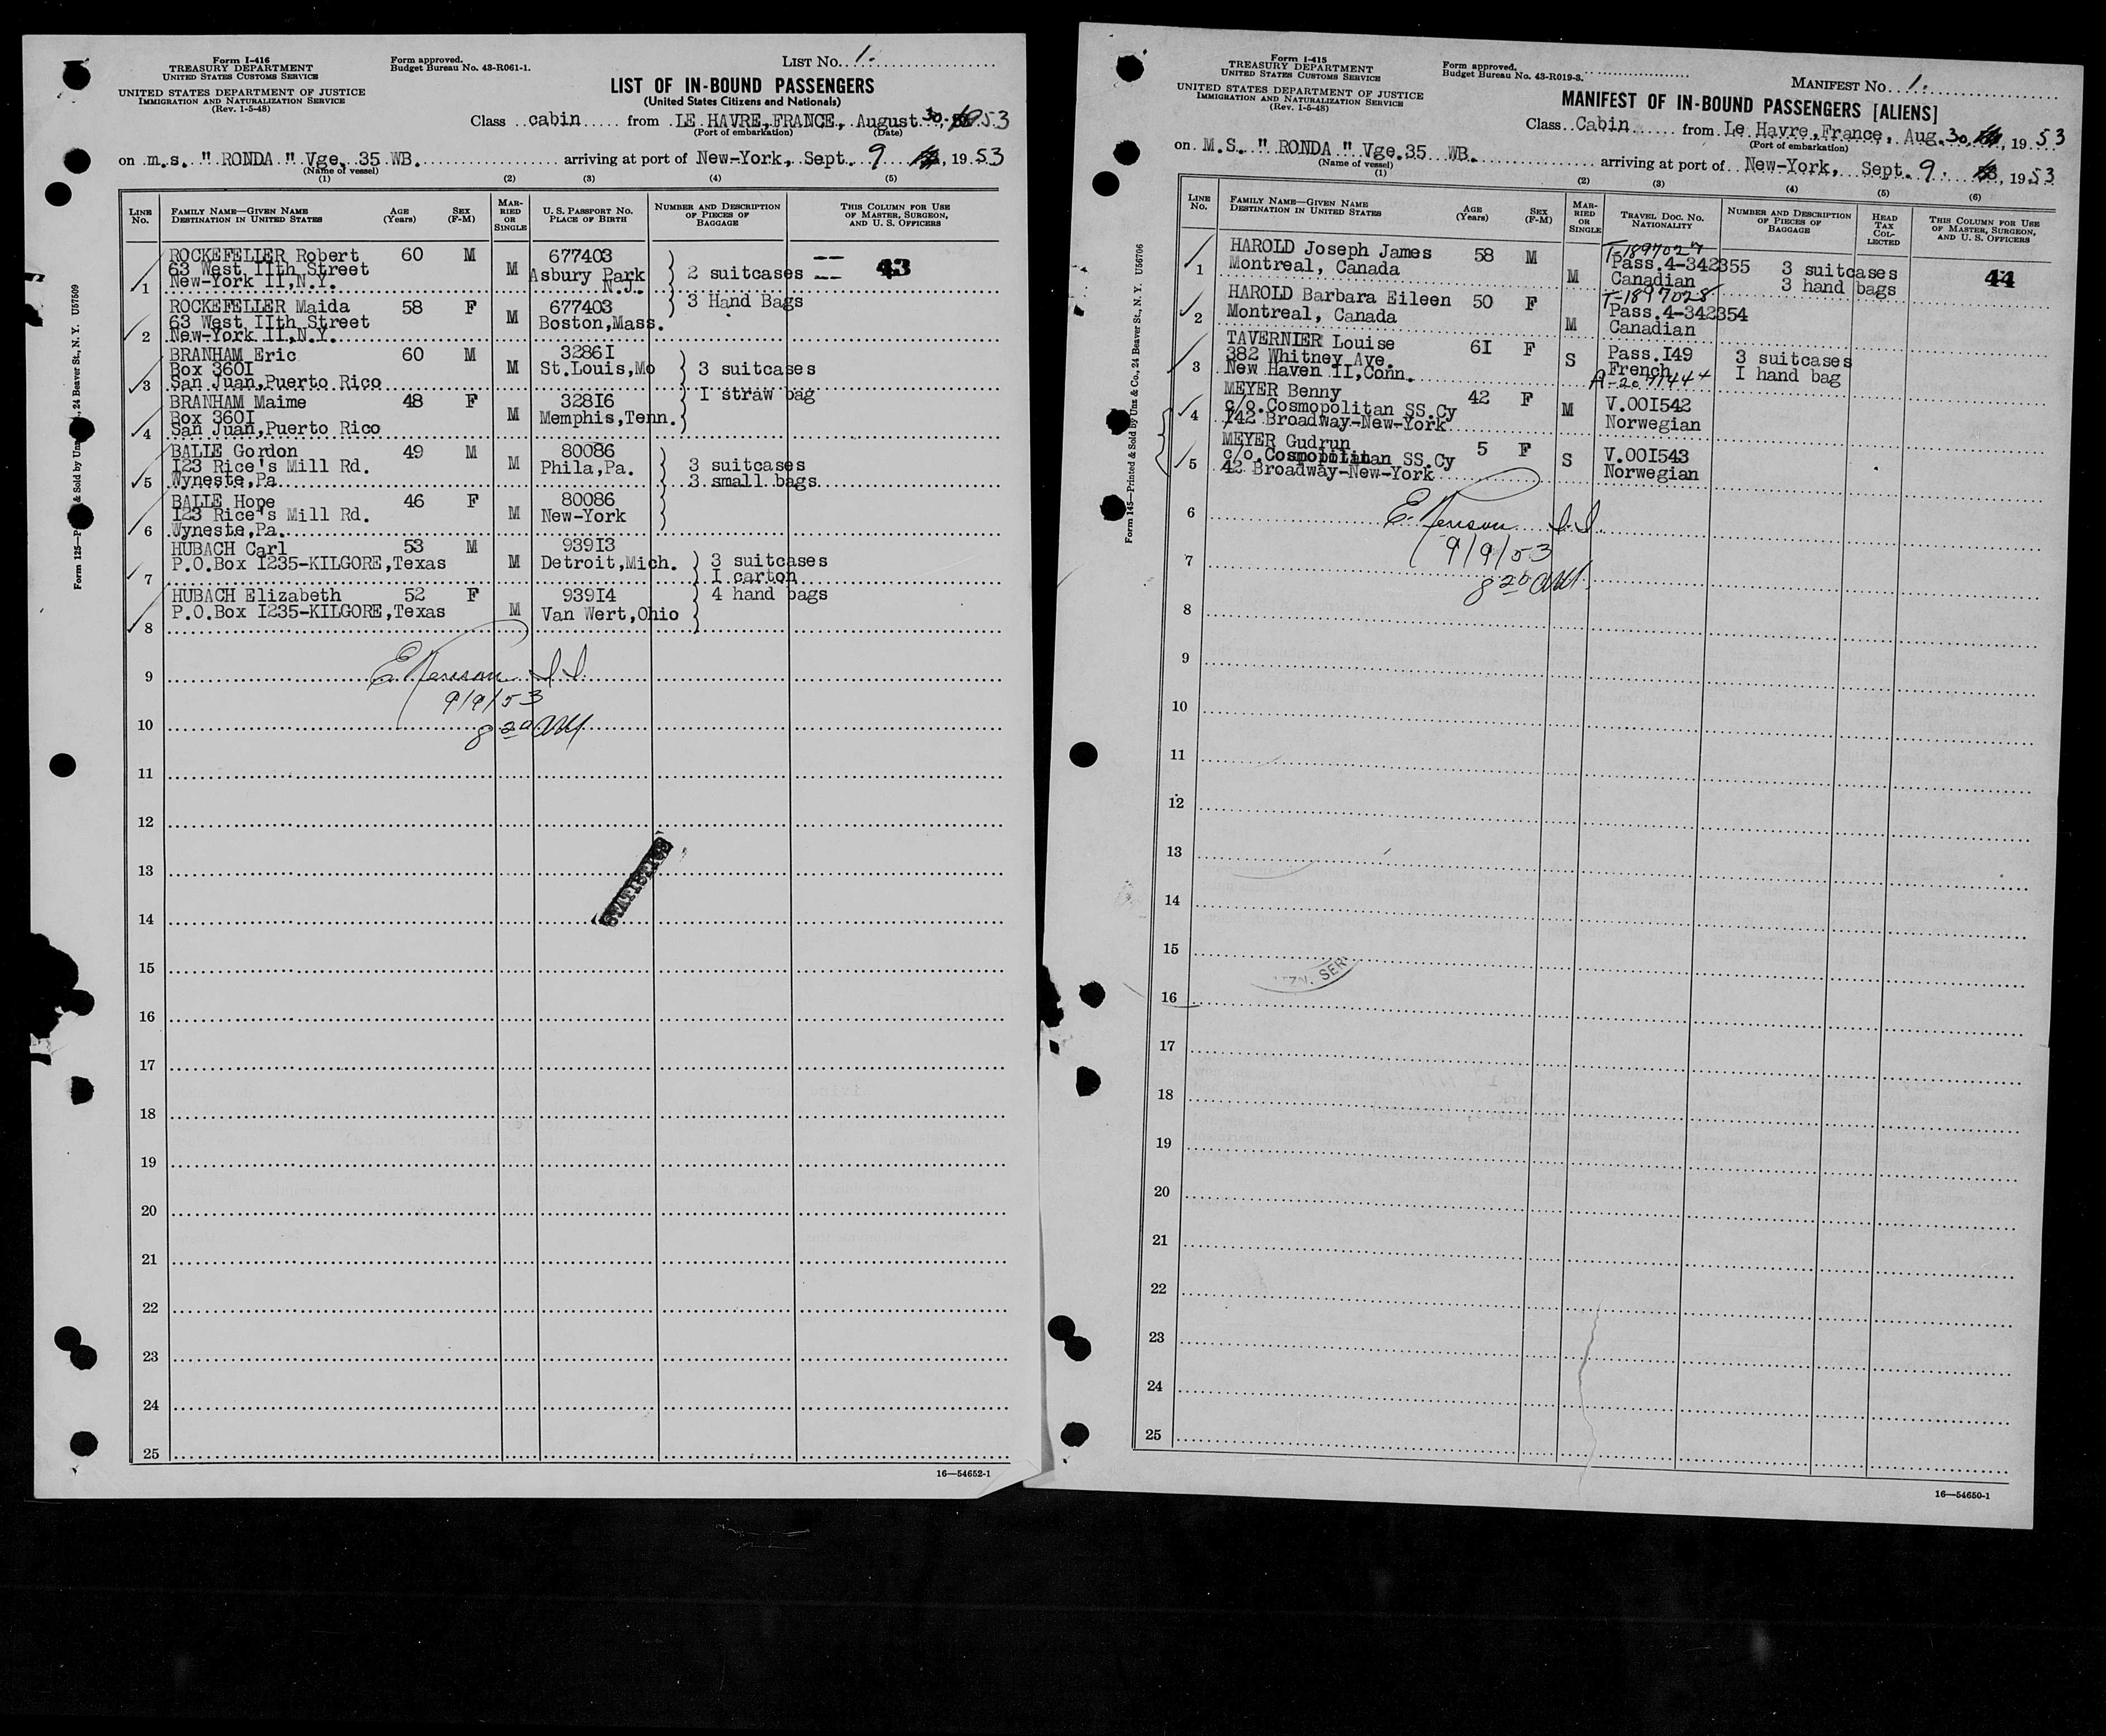 Form I-416
TREASURY DEPARTMENT
UNITED STATES CUSTOMS SERVICE
UNITED STATES DEPARTMENT OF JUSTICE
IMMIGRATION AND NATURALIZATION SERVICE
(Rev. 1-5-48)
Form approved.
Budget Bureau No. 43-R061-1.
LIST No. 1.
LIST OF IN-BOUND PASSENGERS
(United States Citizens and Nationals)
Class cabin from LE HAVRE, FRANCE, August 30, 1953
(Port of embarkation) (Date)
on m.s. " RONDA " Vge. 35 WB. arriving at port of New-York, Sept. 9, 1953
(Name of vessel)
(1) (2) (3) (4) (5)
LINE No.
FAMILY NAME—GIVEN NAME
DESTINATION IN UNITED STATES
AGE (Years)
SEX (F-M)
MARRIED OR SINGLE
U. S. PASSPORT NO.
PLACE OF BIRTH
NUMBER AND DESCRIPTION OF PIECES OF BAGGAGE
THIS COLUMN FOR USE OF MASTER, SURGEON, AND U. S. OFFICERS
ROCKEFELLER Robert 60 M 677403
63 West IIth Street M Asbury Park 2 suitcases 43
1 New-York II,N.Y. N.J.
3 Hand Bags
ROCKEFELLER Maida 58 F 677403
63 West IIth Street M Boston,Mass.
2 New-York II,N.Y.
BRANHAM Eric 60 M 3286I
Box 360I M St.Louis,Mo 3 suitcases
3 San Juan,Puerto Rico
I straw bag
BRANHAM Maime 48 F 328I6
Box 360I M Memphis,Tenn.
4 San Juan,Puerto Rico
BALLE Gordon 49 M 80086
I23 Rice's Mill Rd. M Phila,Pa. 3 suitcases
5 Wyneste,Pa 3 small bags
BALLE Hope 46 F 80086
I23 Rice's Mill Rd. M New-York
6 Wyneste,Pa.
HUBACH Carl 53 M 939I3
P.O.Box I235-KILGORE,Texas M Detroit,Mich. 3 suitcases
7 I carton
HUBACH Elizabeth 52 F 939I4 4 hand bags
P.O.Box I235-KILGORE,Texas M Van Wert,Ohio
8
9
9/9/53
10
8 20 AM
11
12
13
STATISTICS
14
15
16
17
18
19
20
21
22
23
24
25
16—54652-1
Form I-415
TREASURY DEPARTMENT
UNITED STATES CUSTOMS SERVICE
UNITED STATES DEPARTMENT OF JUSTICE
IMMIGRATION AND NATURALIZATION SERVICE
(Rev. 1-5-48)
Form approved.
Budget Bureau No. 43-R019-3.
MANIFEST No. 1.
MANIFEST OF IN-BOUND PASSENGERS [ALIENS]
Class Cabin from Le Havre, France, Aug. 30, 1953
(Port of embarkation)
on M.S. " RONDA " Vge.35 WB. arriving at port of New-York, Sept. 9, 1953
(Name of vessel)
(1) (2) (3) (4) (5) (6)
LINE No.
FAMILY NAME—GIVEN NAME
DESTINATION IN UNITED STATES
AGE (Years)
SEX (F-M)
MARRIED OR SINGLE
TRAVEL DOC. NO.
NATIONALITY
NUMBER AND DESCRIPTION OF PIECES OF BAGGAGE
HEAD TAX COLLECTED
THIS COLUMN FOR USE OF MASTER, SURGEON, AND U. S. OFFICERS
T-1897027
HAROLD Joseph James 58 M Pass.4-342355 3 suitcases
1 Montreal, Canada M Canadian 3 hand bags 44
T-1897028
HAROLD Barbara Eileen 50 F Pass.4-342354
2 Montreal, Canada M Canadian
TAVERNIER Louise 6I F Pass.I49 3 suitcases
382 Whitney Ave. S French I hand bag
3 New Haven II,Conn.
MEYER Benny 42 F V.00I542
c/o.Cosmopolitan SS.Cy M Norwegian
4 I42 Broadway-New-York
MEYER Gudrun 5 F V.00I543
c/o.Cosmopolitan SS.Cy S Norwegian
5 42 Broadway-New-York
6
9/9/53
7
8 20 AM
8
9
10
11
12
13
14
15
SER
16
17
18
19
20
21
22
23
24
25
16—54650-1